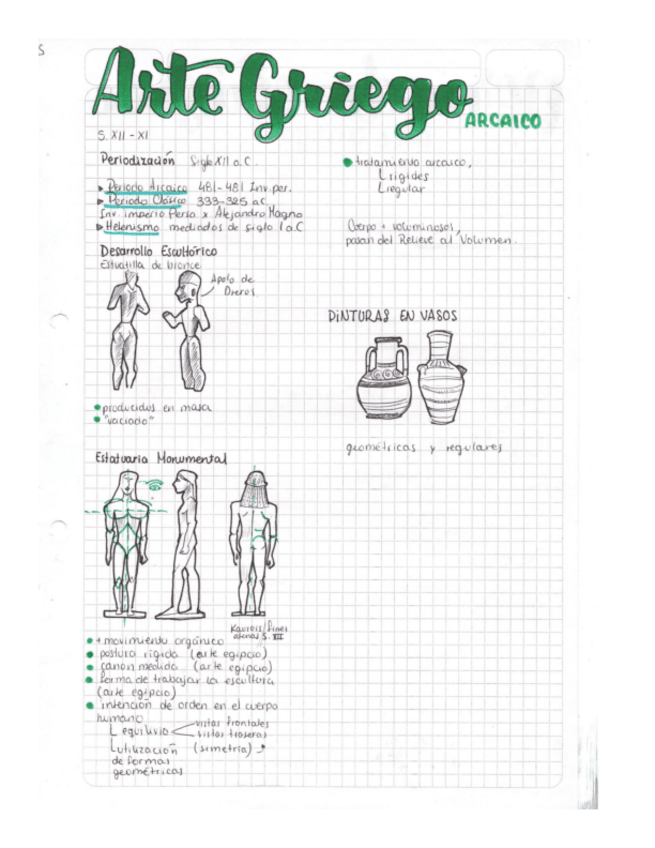 S
Arte Griego
ARCAICO
S. XII - XI
Periodización Siglo XII a.C.
Periodo Arcaico 481-481 Inv. per.
Periodo Clásico 333-325 a.C
Inv. imperio Persa x Alejandro Magno
Helenismo mediados de siglo I a.C
Desarrollo Escultórico
Estuatilla de bronce
Apolo de
Dreros.
producidos en masa
"vaciado"
Estatuaria Monumental
Kouros/fines
atenas S. VII
+ movimiento orgánico
postura rígida (arte egipcio)
canon medida (arte egipcio)
forma de trabajar la escultura
(arte egipcio)
intención de orden en el cuerpo
humano
equilivio
vistas frontales
vistas traseras
utilización (simetría)
de formas
geométricas
tratamiento arcaico,
rigides
regular
Cuerpo + voluminosos,
pasan del Relieve al Volumen.
PINTURAS EN VASOS
geométricas y regulares